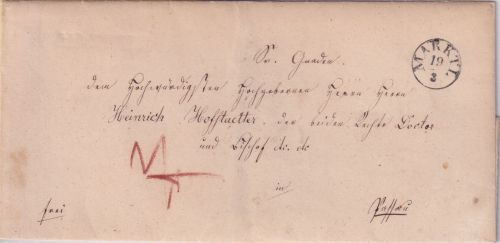 Sr. Gnaden
MARKTL
19
3
dem Hochwürdigsten Hochgebornen Herrn Herrn
Heinrich Hofstaetter, der beiden Rechte Doctor
und Bischof etc. etc.
in
frei
Passau